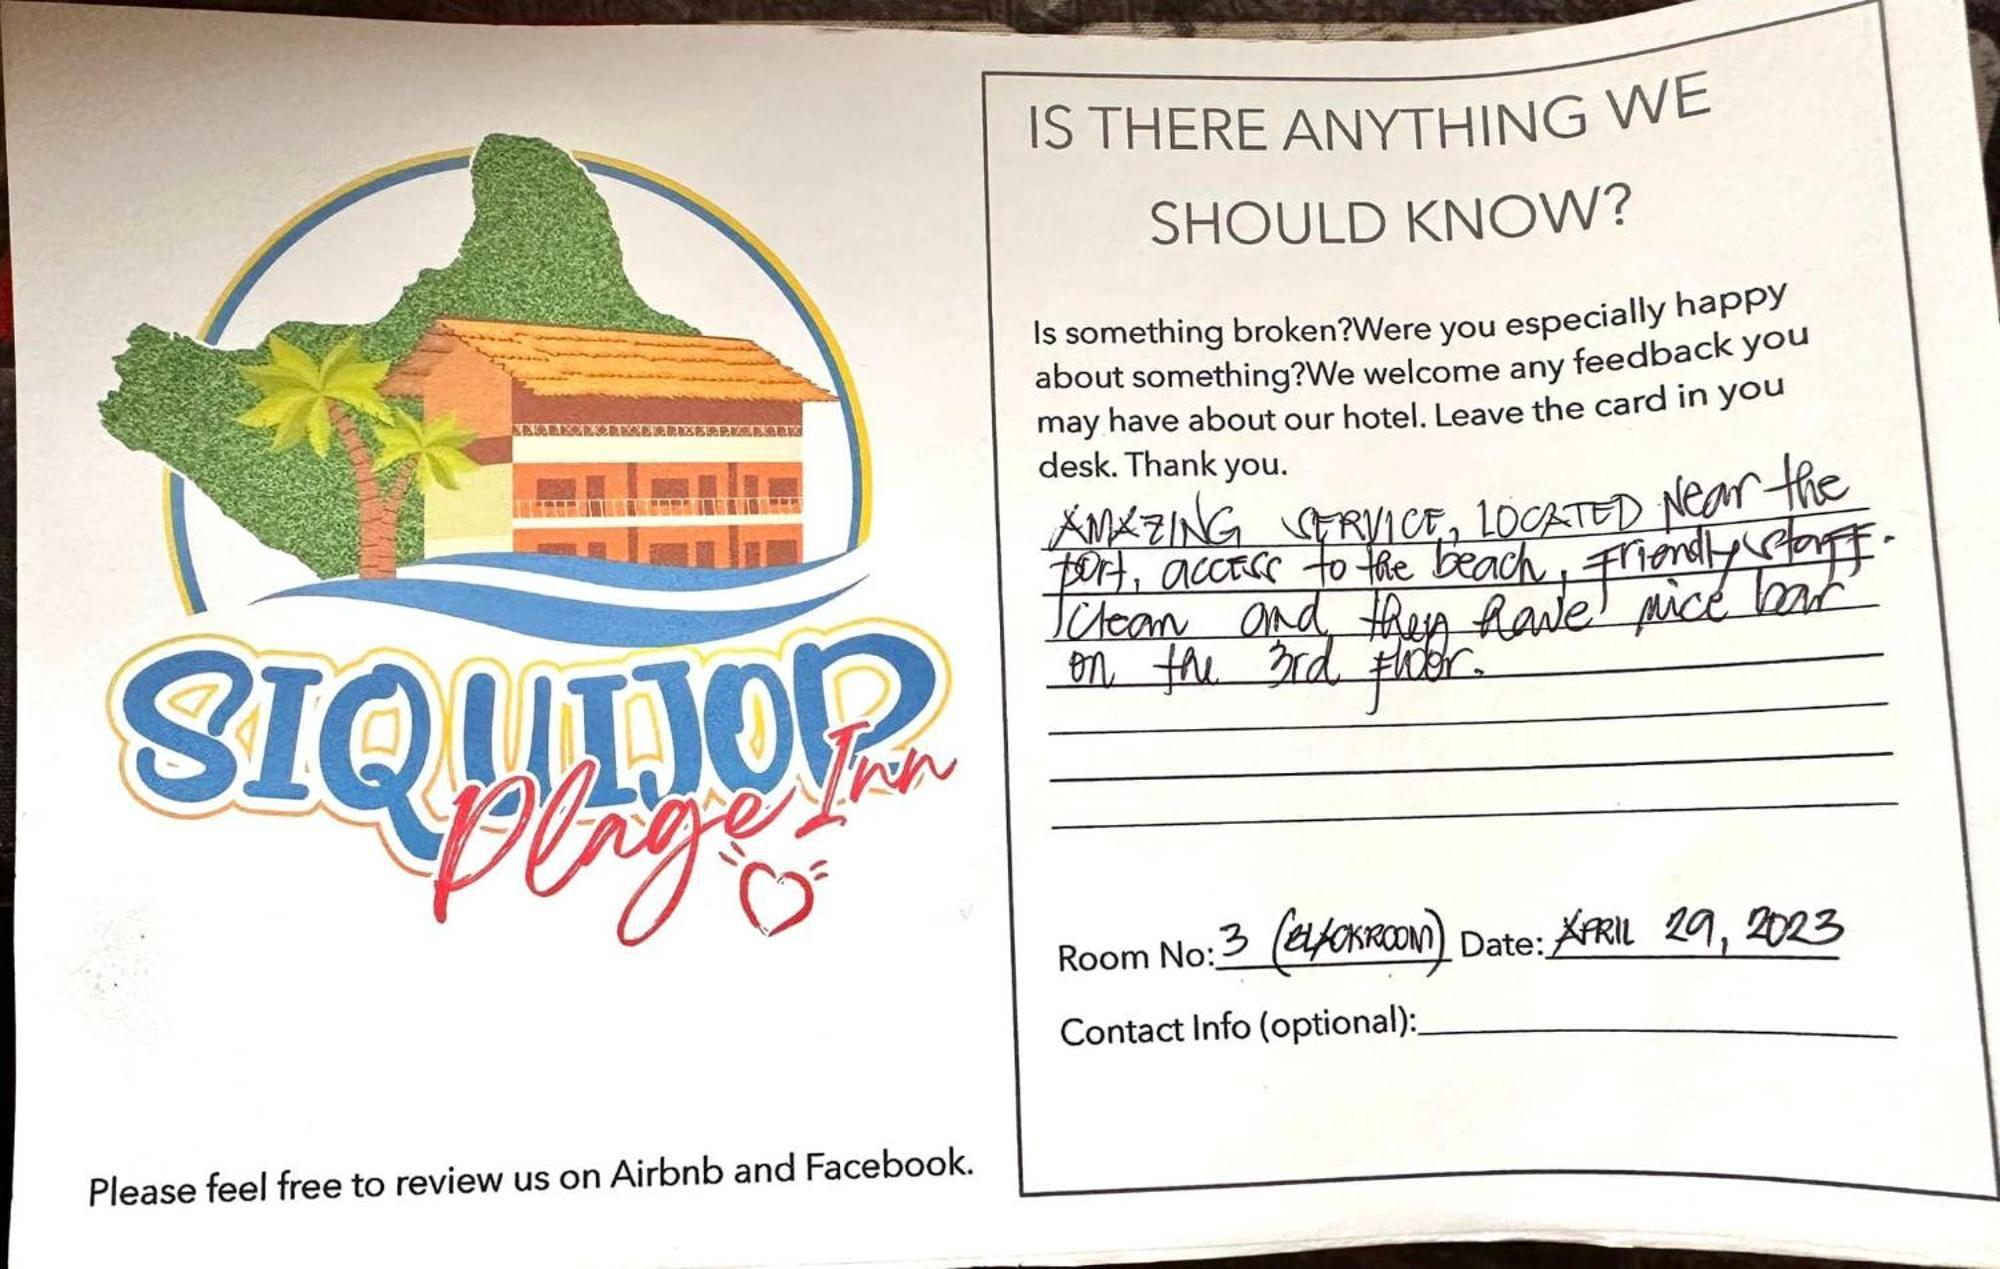 SIQUIJOR
Plage Inn
Please feel free to review us on Airbnb and Facebook.
IS THERE ANYTHING WE
SHOULD KNOW?
Is something broken?Were you especially happy
about something?We welcome any feedback you
may have about our hotel. Leave the card in you
desk. Thank you.
AMAZING SERVICE, LOCATED Near the
port, access to the beach, Friendly staff.
Clean and they have nice bar
on the 3rd floor.
Room No: 3 (BLACKROOM) Date: APRIL 29, 2023
Contact Info (optional):